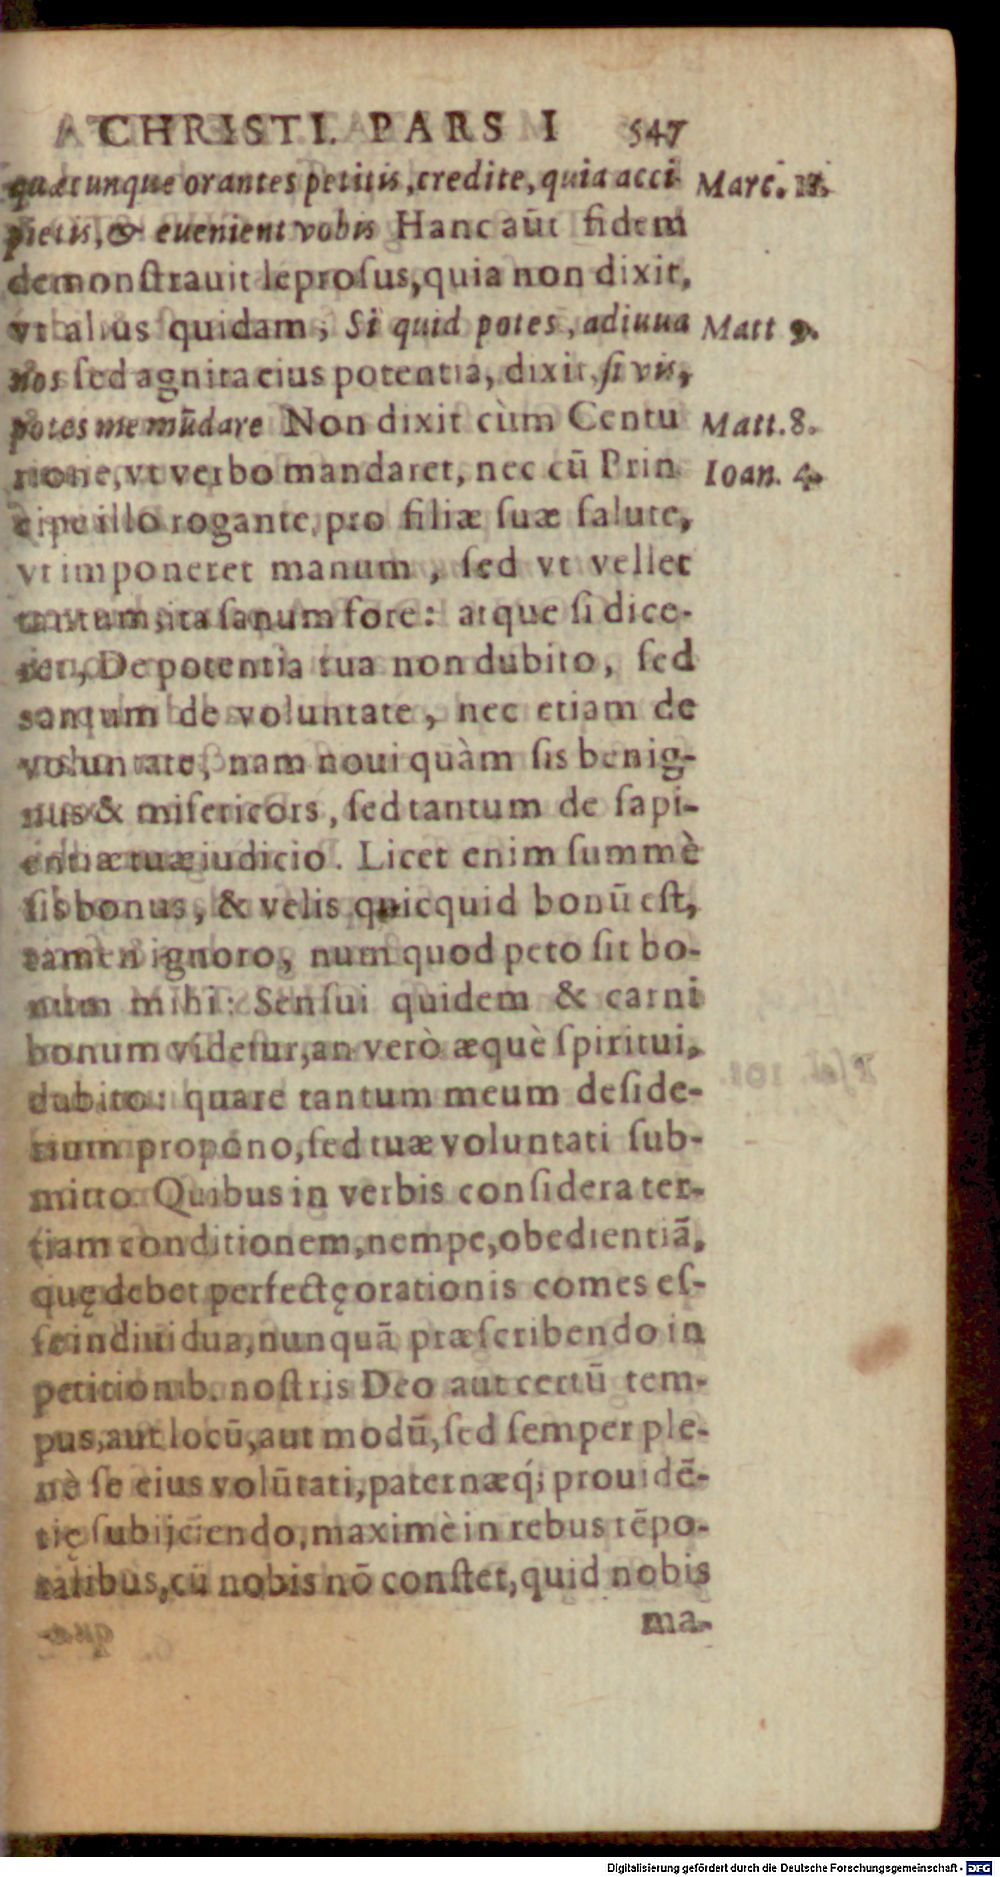 CHRISTI. PARS I 547
quæcunque orantes petitis, credite, quia acci- Marc. 11.
pietis, & euenient vobis Hanc aūt fidem
demonſtrauit leproſus, quia non dixit,
vt alius quidam, Si quid potes, adiuua Matt 9.
nos ſed agnita eius potentia, dixit, ſi vis,
potes me mūdare Non dixit cùm Centu Matt. 8.
rione, vt verbo mandaret, nec cū Prin Ioan. 4.
cipe illo rogante, pro filiæ ſuæ ſalute,
vt imponeret manum, ſed vt vellet
tantum, ita ſanum fore: atque ſi dice-
ret, De potentia tua non dubito, ſed
tantum de voluntate, nec etiam de
voluntate, nam noui quàm ſis benig-
nus & miſericors, ſed tantum de ſapi-
entiæ tuæ iudicio. Licet enim ſummè
ſis bonus, & velis quicquid bonū eſt,
tamen ignoro, num quod peto ſit bo-
num mihi: Senſui quidem & carni
bonum videtur, an verò æquè ſpiritui,
dubito: quare tantum meum deſide-
rium propono, ſed tuæ voluntati ſub-
mitto. Quibus in verbis conſidera ter-
tiam conditionem, nempe, obedientiā,
quę debet perfectę orationis comes eſ-
ſe indiuidua, nunquā præſcribendo in
petitionib. noſtris Deo aut certū tem-
pus, aut locū, aut modū, ſed ſemper ple-
nè ſe eius volūtati, paternæq́; prouidē-
tię ſubijciendo, maximè in rebus tēpo-
ralibus, cū nobis nō conſtet, quid nobis
ma-
Digitalisierung gefördert durch die Deutsche Forschungsgemeinschaft - DFG